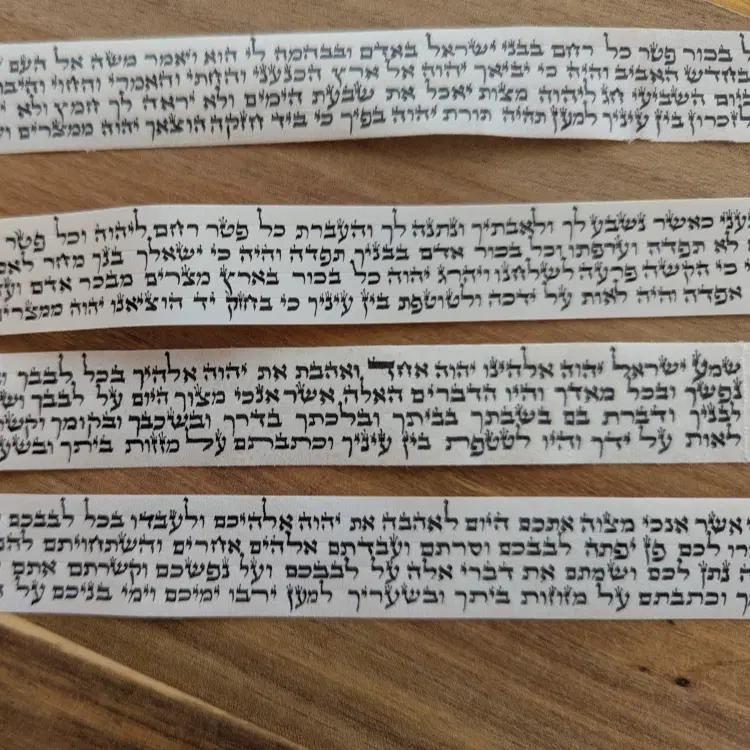 בכור פטר כל רחם בבני ישראל באדם ובבהמה לי הוא ויאמר משה אל העם
בחדש האביב והיה כי יביאך יהוה אל ארץ הכנעני והחתי והאמרי והחוי
ביום השביעי חג ליהוה מצות יאכל את שבעת הימים ולא יראה לך חמץ ולא
לזכרון בין עיניך למען תהיה תורת יהוה בפיך כי ביד חזקה הוצאך יהוה ממצרים
כאשר נשבע לך ולאבתיך ונתנה לך והעברת כל פטר רחם ליהוה וכל פטר
לא תפדה וערפתו וכל בכור אדם בבניך תפדה והיה כי ישאלך בנך מחר
כי הקשה פרעה לשלחנו ויהרג יהוה כל בכור בארץ מצרים מבכר אדם
אפדה והיה לאות על ידכה ולטוטפת בין עיניך כי בחזק יד הוציאנו יהוה ממצרים
שמע ישראל יהוה אלהינו יהוה אחד ואהבת את יהוה אלהיך בכל לבבך
נפשך ובכל מאדך והיו הדברים האלה אשר אנכי מצוך היום על לבבך
לבניך ודברת בם בשבתך בביתך ובלכתך בדרך ובשכבך ובקומך
לאות על ידך והיו לטטפת בין עיניך וכתבתם על מזזות ביתך
אשר אנכי מצוה אתכם היום לאהבה את יהוה אלהיכם ולעבדו בכל לבבכם
לכם פן יפתה לבבכם וסרתם ועבדתם אלהים אחרים והשתחויתם
נתן לכם ושמתם את דברי אלה על לבבכם ועל נפשכם וקשרתם אתם
וכתבתם על מזוזות ביתך ובשעריך למען ירבו ימיכם וימי בניכם על